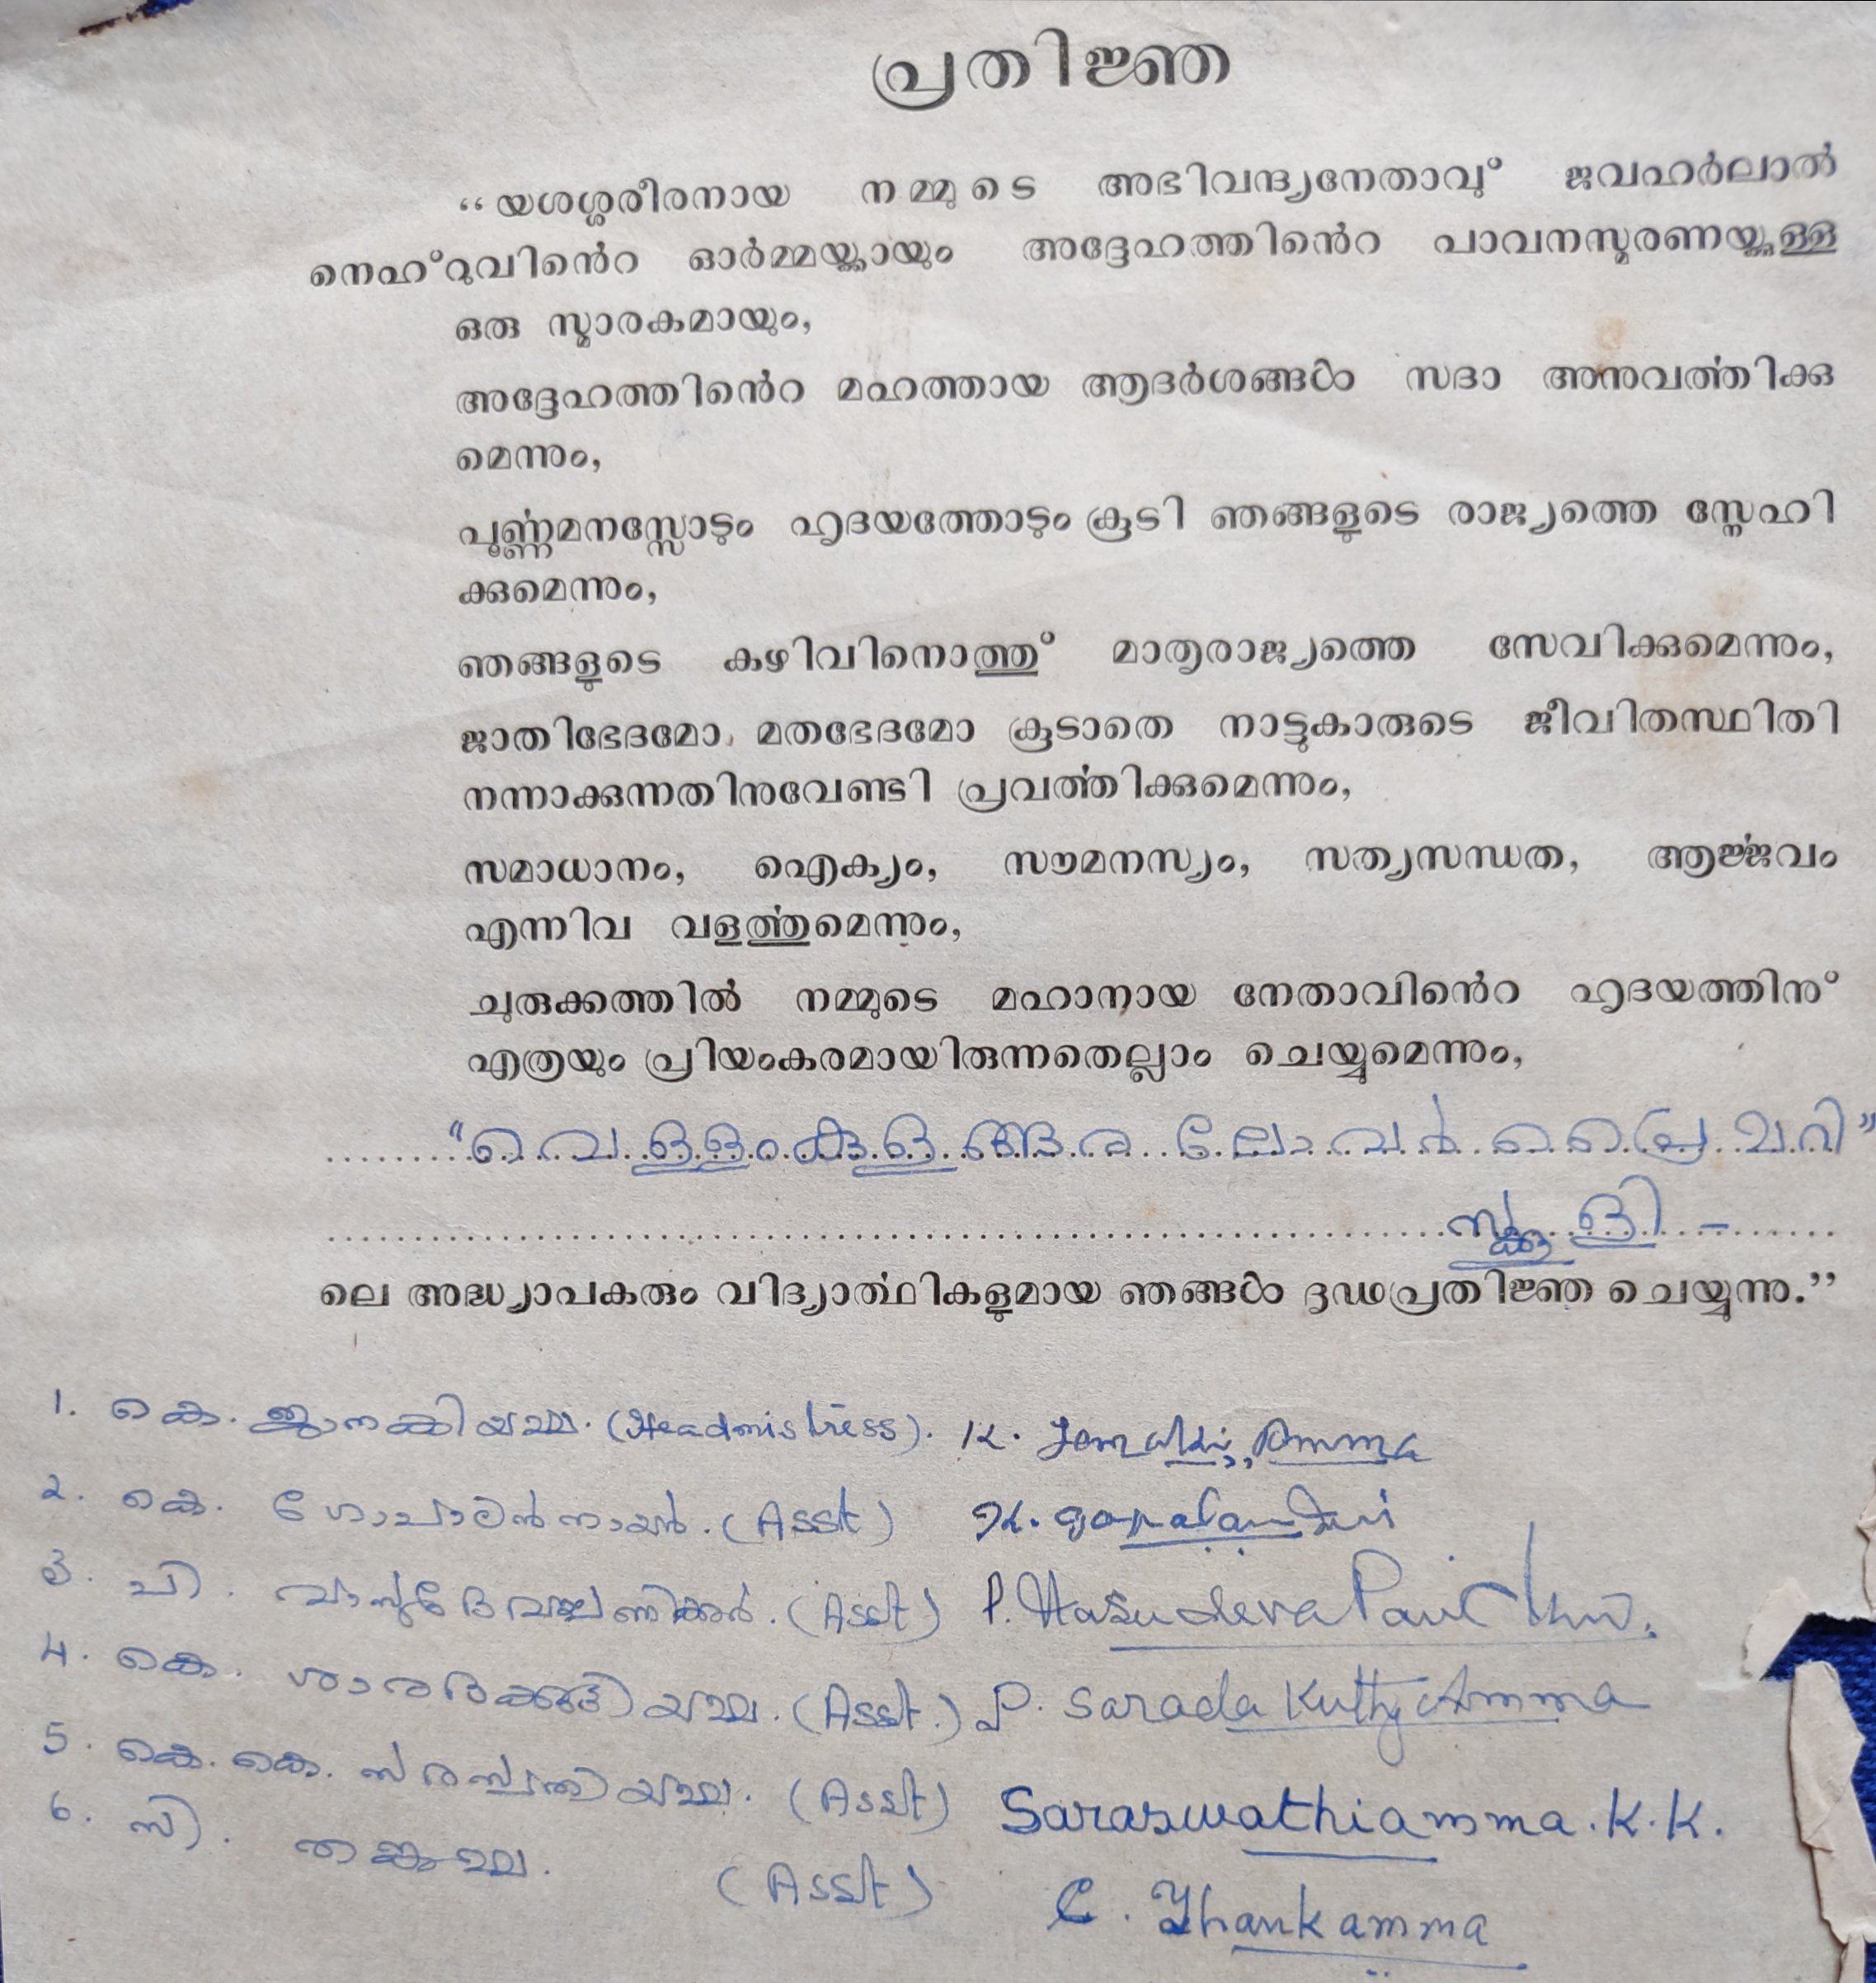 പ്രതിജ്ഞ
“യശശ്ശരീരനായ നമ്മുടെ അഭിവന്ദ്യനേതാവു് ജവഹർലാൽ
നെഹ്റുവിൻെറ ഓർമ്മയ്ക്കായും അദ്ദേഹത്തിൻെറ പാവനസ്മരണയ്ക്കുള്ള
ഒരു സ്മാരകമായും,
അദ്ദേഹത്തിൻെറ മഹത്തായ ആദർശങ്ങൾ സദാ അനുവൎത്തിക്കു
മെന്നും,
പൂൎണ്ണമനസ്സോടും ഹൃദയത്തോടും കൂടി ഞങ്ങളുടെ രാജ്യത്തെ സ്നേഹി
ക്കുമെന്നും,
ഞങ്ങളുടെ കഴിവിനൊത്തു് മാതൃരാജ്യത്തെ സേവിക്കുമെന്നും,
ജാതിഭേദമോ, മതഭേദമോ കൂടാതെ നാട്ടുകാരുടെ ജീവിതസ്ഥിതി
നന്നാക്കുന്നതിനുവേണ്ടി പ്രവൎത്തിക്കുമെന്നും,
സമാധാനം, ഐക്യം, സൗമനസ്യം, സത്യസന്ധത, ആൎജ്ജവം
എന്നിവ വളൎത്തുമെന്നും,
ചുരുക്കത്തിൽ നമ്മുടെ മഹാനായ നേതാവിൻെറ ഹൃദയത്തിനു്
എത്രയും പ്രിയംകരമായിരുന്നതെല്ലാം ചെയ്യുമെന്നും,
“വെള്ളംകുളങ്ങര ലോവർ പ്രൈമറി”
സ്ക്കൂളി –
ലെ അദ്ധ്യാപകരും വിദ്യാൎത്ഥികളുമായ ഞങ്ങൾ ദൃഢപ്രതിജ്ഞ ചെയ്യുന്നു.”
1. കെ. ജാനകിയമ്മ. (Headmistress). K. Janaki Amma
2. കെ. ഗോപാലൻനായർ. (Asst) K. gopalan
3. പി. വാസുദേവപ്പണിക്കർ. (Asst) P. Vasudeva
4. കെ. ശാരദക്കുട്ടിയമ്മ. (Asst.) P. Sarada Kutty Amma
5. കെ. കെ. സരസ്വതിയമ്മ. (Asst) Saraswathiamma. K. K.
6. സി. തങ്കമ്മ. (Asst) C. Thankamma